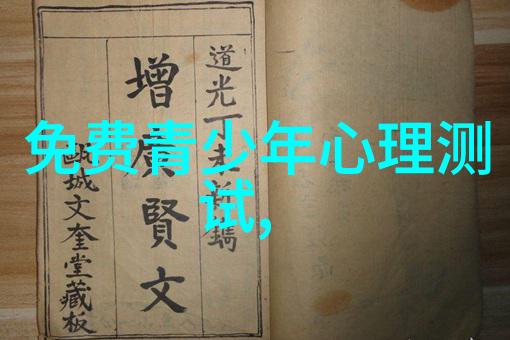 免费青少年心理测
试,
道光丁未新鐫
增廣賢文
甌城文奎堂藏板